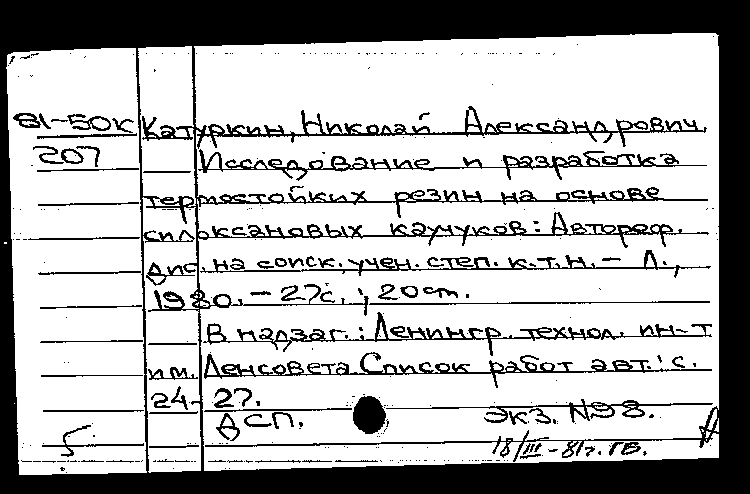 81-50к Катуркин, Николай Александрович.
207 Исследование и разработка
термостойких резин на основе
силоксановых каучуков: Автореф.
дис. на соиск. учен. степ. к.т.н. - Л.,
1980. - 27с.; 20см.
В надзаг.: Ленингр. технол. ин-т
им. Ленсовета. Список работ авт.: с.
24-27.
ДСП. Экз. №98.
5 18/III-81г. ГВ.